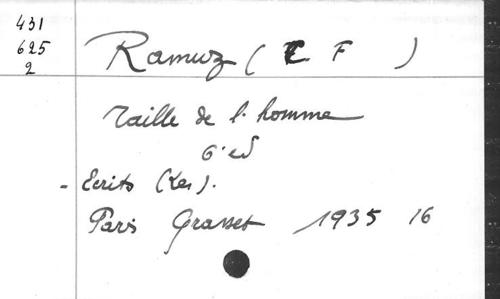 431
625
2
Ramuz ( C F )
Taille de l'homme
6° ed
- Ecrits (Les).
Paris Grasset 1935 16